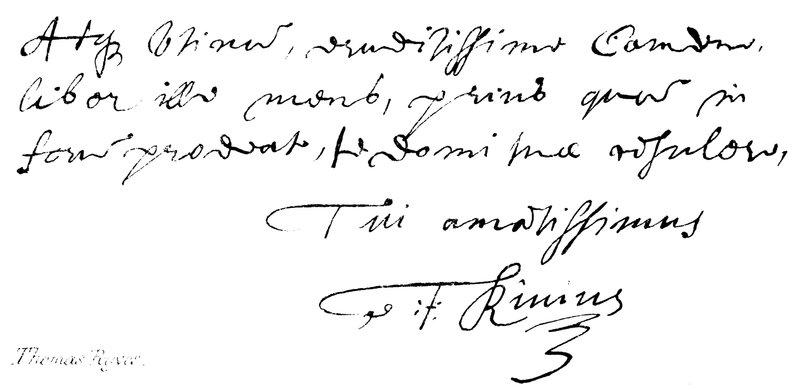 Atq; Utinā, eruditissime Camdene,
liber ille meus, prius quā in
forū prodeat, te domi suæ cōsuleret,
Tui amātissimus
T. Rivius
Thomas Ryves.